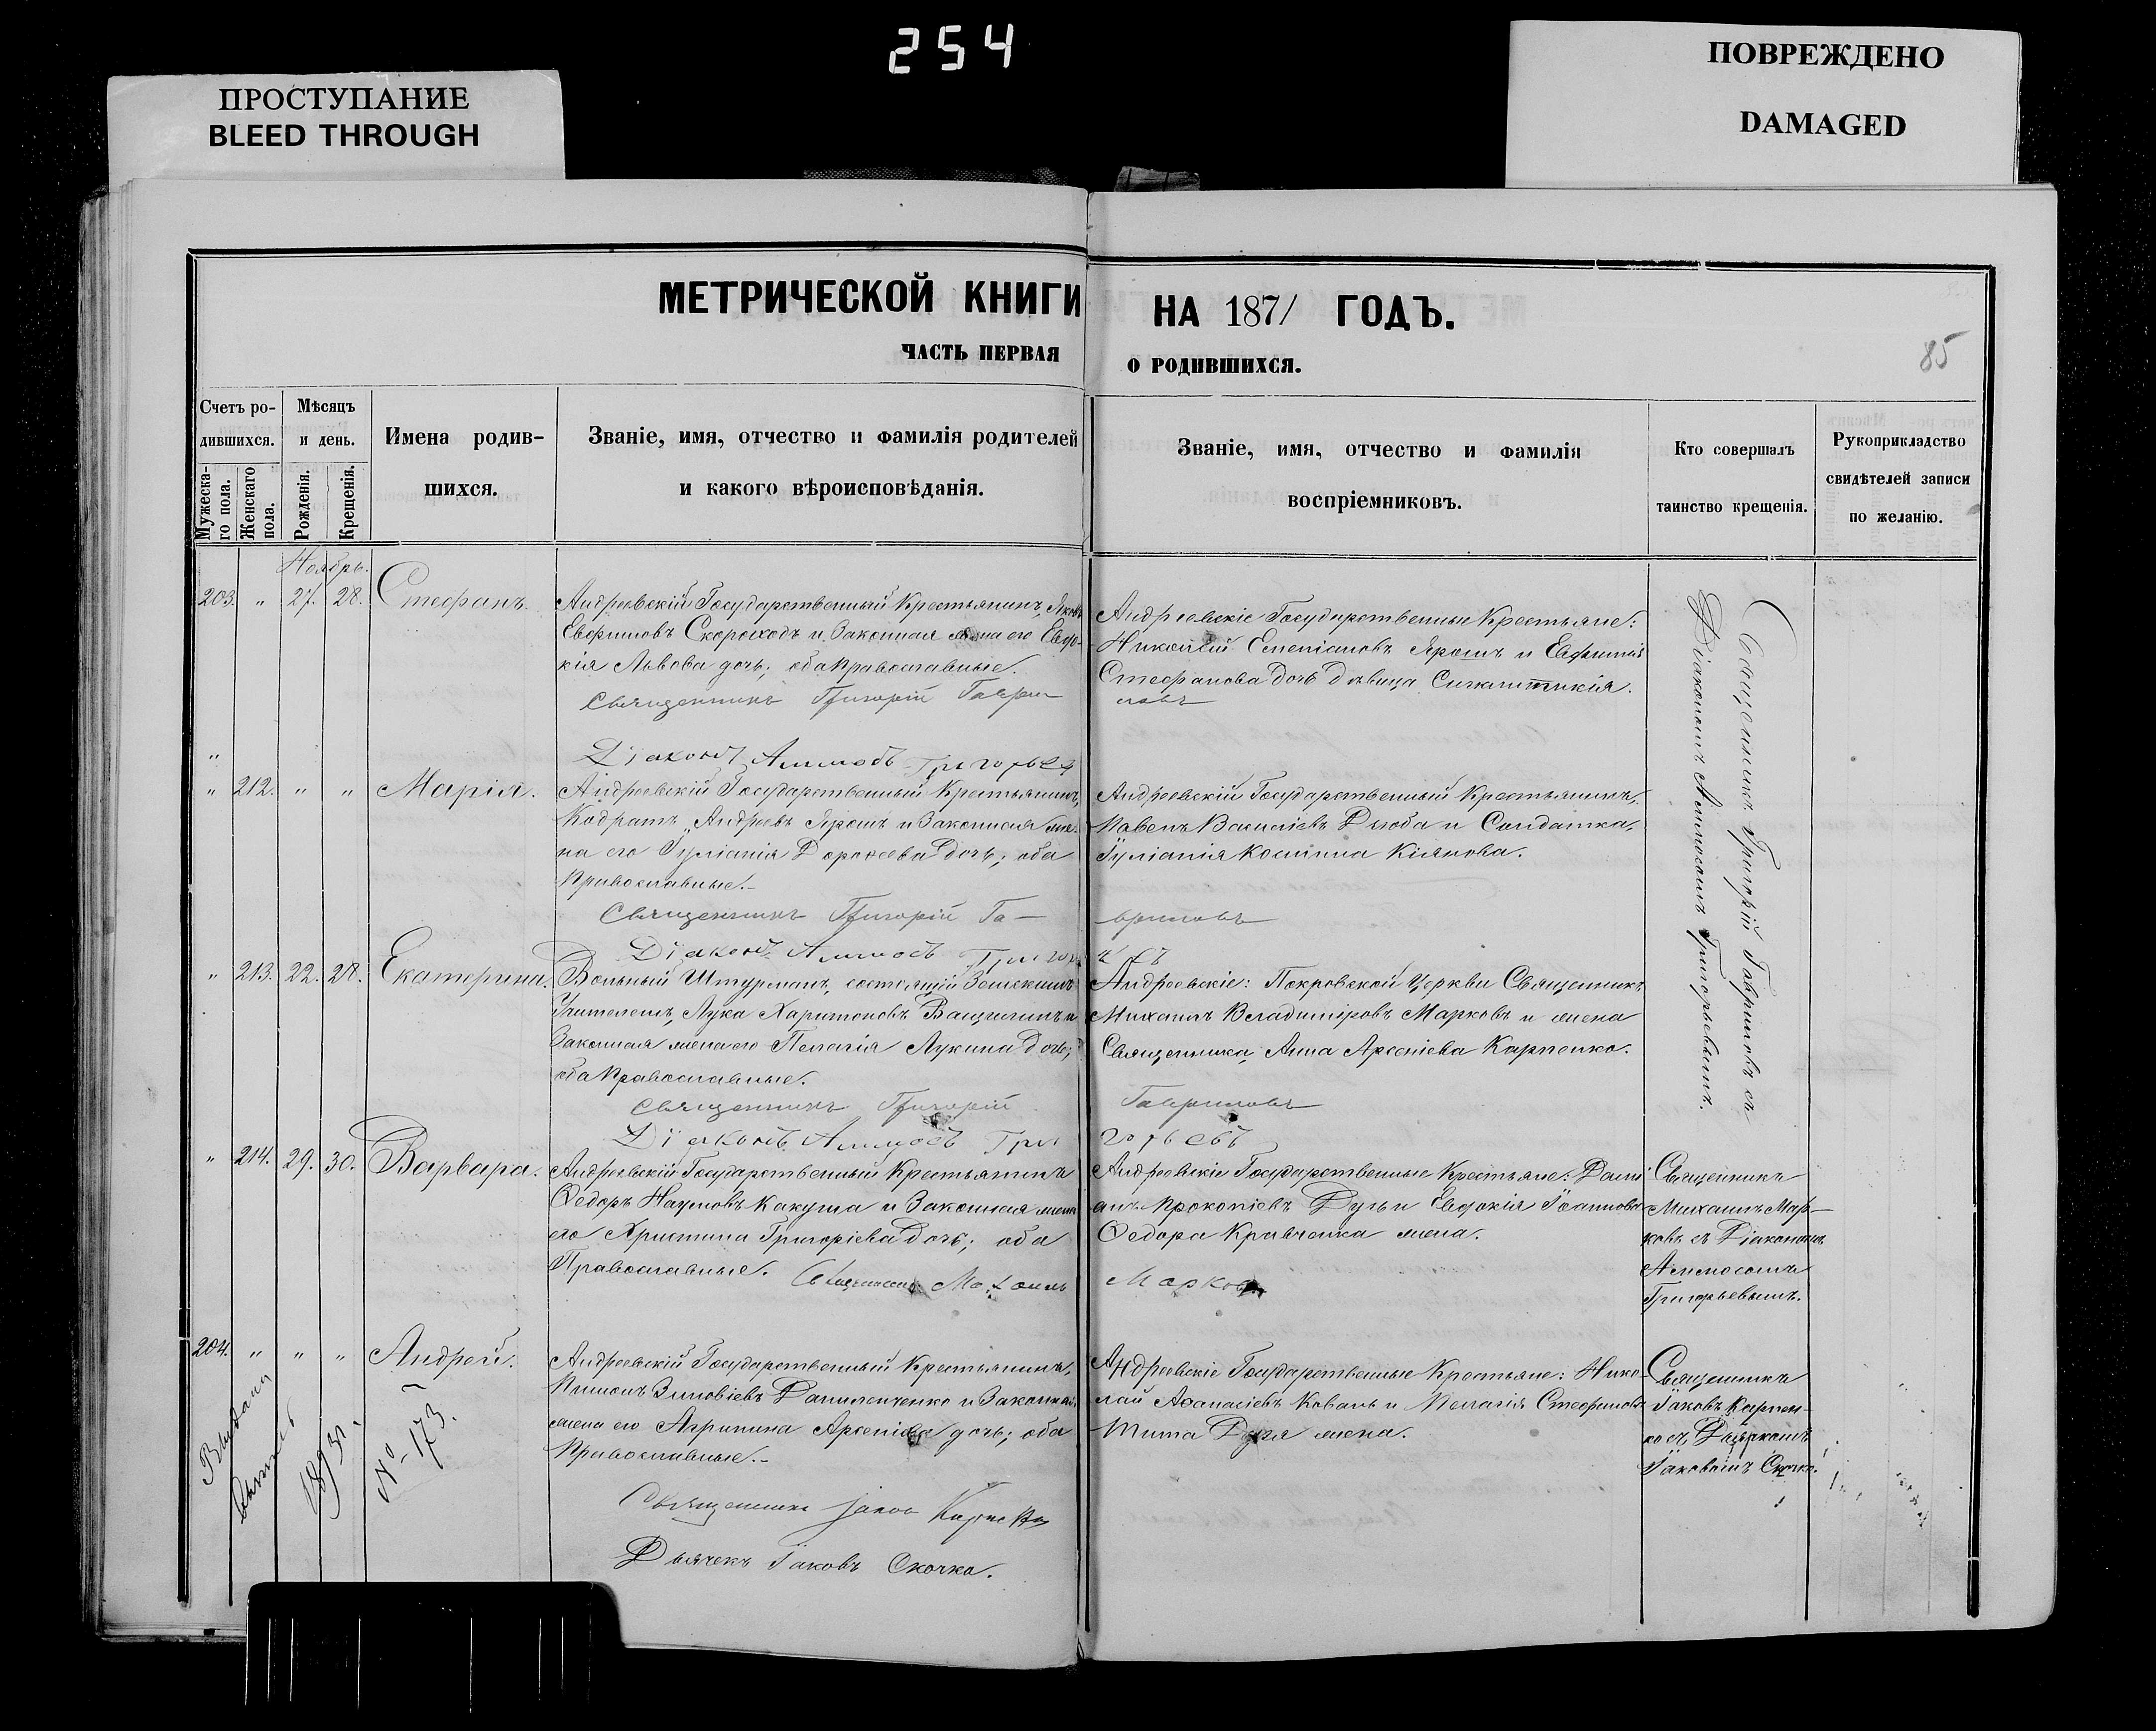 254
ПРОСТУПАНИЕ
BLEED THROUGH
ПОВРЕЖДЕНО
DAMAGED
МЕТРИЧЕСКОЙ КНИГИ НА 1871 ГОДЪ.
ЧАСТЬ ПЕРВАЯ О РОДИВШИХСЯ.
85
Счетъ ро-
дившихся.
Мужеска-
го пола.
Женскаго
пола.
Мѣсяцъ
и день.
Рожденія.
Крещенія.
Имена родив-
шихся.
Званіе, имя, отчество и фамилія родителей
и какого вѣроисповѣданія.
Званіе, имя, отчество и фамилія
воспріемниковъ.
Кто совершалъ
таинство крещенія.
Рукоприкладство
свидѣтелей записи
по желанію.
Ноябрь.
203. " 27. 28. Стефанъ.
Андреевскій Государственный Крестьянинъ, Яковъ
Евфимовъ Скороходъ и Законная жена его Евдо-
кія Львова дочь; оба Православные.
Священникъ Григорій Гаври-
ловъ
Діаконъ Аммосъ Григорьев
Андреевскіе Государственные Крестьяне:
Николай Ярошъ и Евфимія
Стефанова дочь дѣвица
Священникъ Григорій Гавриловъ съ
Діакономъ Аммосомъ Григорьевымъ.
" 212. " " Марія.
Андреевскій Государственный Крестьянинъ,
Кодратъ Андреевъ Ярошъ и Законная же-
на его Іуліанія Дорофеева дочь; оба
Православные.-
Священникъ Григорій Га-
вриловъ
Діаконъ Аммосъ Григор
Андреевскій Государственный Крестьянинъ,
Павелъ Василіевъ Дзюба и Солдатка,
Іуліанія Космина Кіянова.
" 213. 22. 28. Екатерина.
Вольный Штурманъ, состоящій Земскимъ
Учителемъ, Лука Харитоновъ и
Законная жена его Пелагія Лукина дочь;
оба Православные.
Священникъ Григорій Гавриловъ
Діаконъ Аммосъ Григорьевъ
Андреевскіе: Покровской Церкви Священникъ
Михаилъ Владиміровъ Марковъ и жена
Священника, Анна Арсеніева Карпенко.
" 214. 29. 30. Варвара.
Андреевскій Государственный Крестьянинъ
Ѳедоръ Наумовъ Какуша и Законная жена
его Христина Григоріева дочь; оба
Православные. Священникъ Михаилъ Марковъ
Андреевскіе Государственные Крестьяне: Даміанъ Прокопіевъ Дуль и Евдокія Іоаннова
Ѳедора Кравченка жена.
Священникъ
Михаилъ Мар-
ковъ съ Діакономъ
Аммосомъ
Григорьевымъ.
204. " " " Андрей.
Андреевскій Государственный Крестьянинъ,
Пименъ Зиновіевъ Данильченко и Законная
жена его Агрипина Арсеніева дочь; оба
Православные.-
Священникъ Іаковъ Карпенко
Дьячекъ Іаковъ Скочко.
Андреевскіе Государственные Крестьяне: Нико-
лай Аѳанасіевъ Коваль и Пелагія Стефанова
Тита жена.
Священникъ
Іаковъ Карпен-
ко съ Дьячкомъ
Іаковомъ Скочко.
Выдана
1893 г.
№ 173.